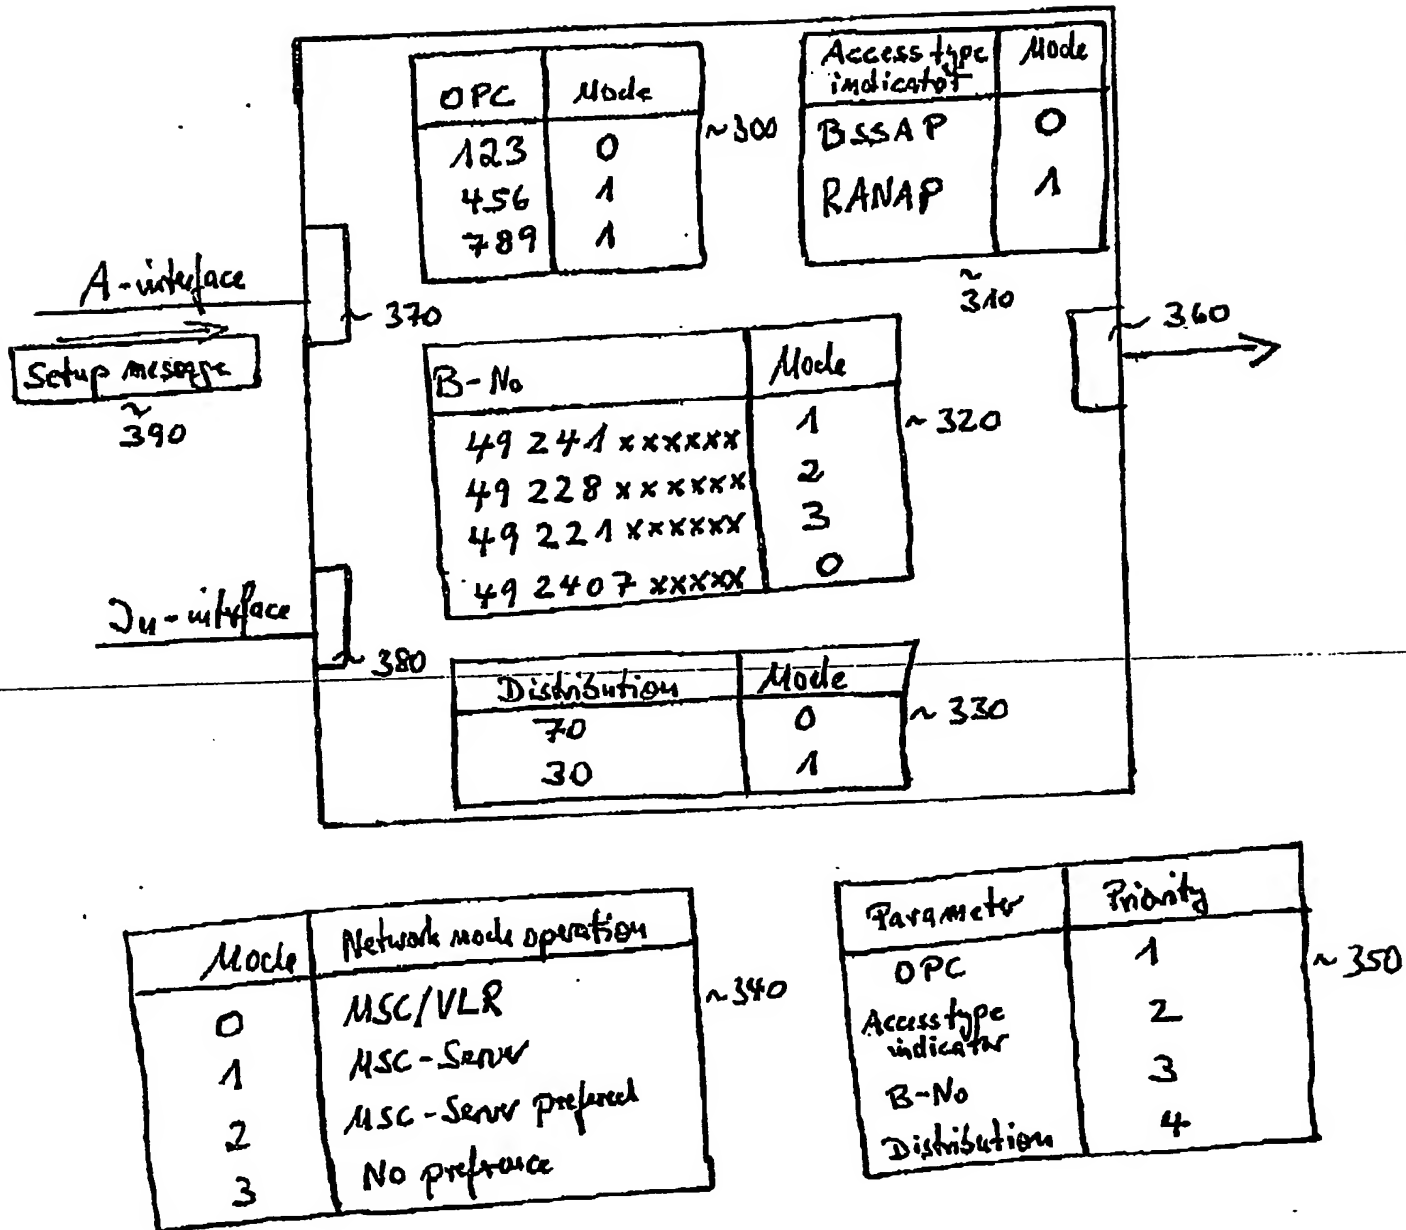 OPC Mode
123 0
456 1
789 1
~300
Access type indicator Mode
BSSAP 0
RANAP 1
~
310
A-interface
~370
Setup message
~
390
~360
B-No Mode
49 241 xxxxxx 1
49 228 xxxxxx 2
49 221 xxxxxx 3
49 2407 xxxxx 0
~320
Iu-interface
~380
Distribution Mode
70 0
30 1
~330
Mode Network mode operation
0 MSC/VLR
1 MSC-Server
2 MSC-Server prefered
3 No preference
~340
Parameter Priority
OPC 1
Access type indicator 2
B-No 3
Distribution 4
~350